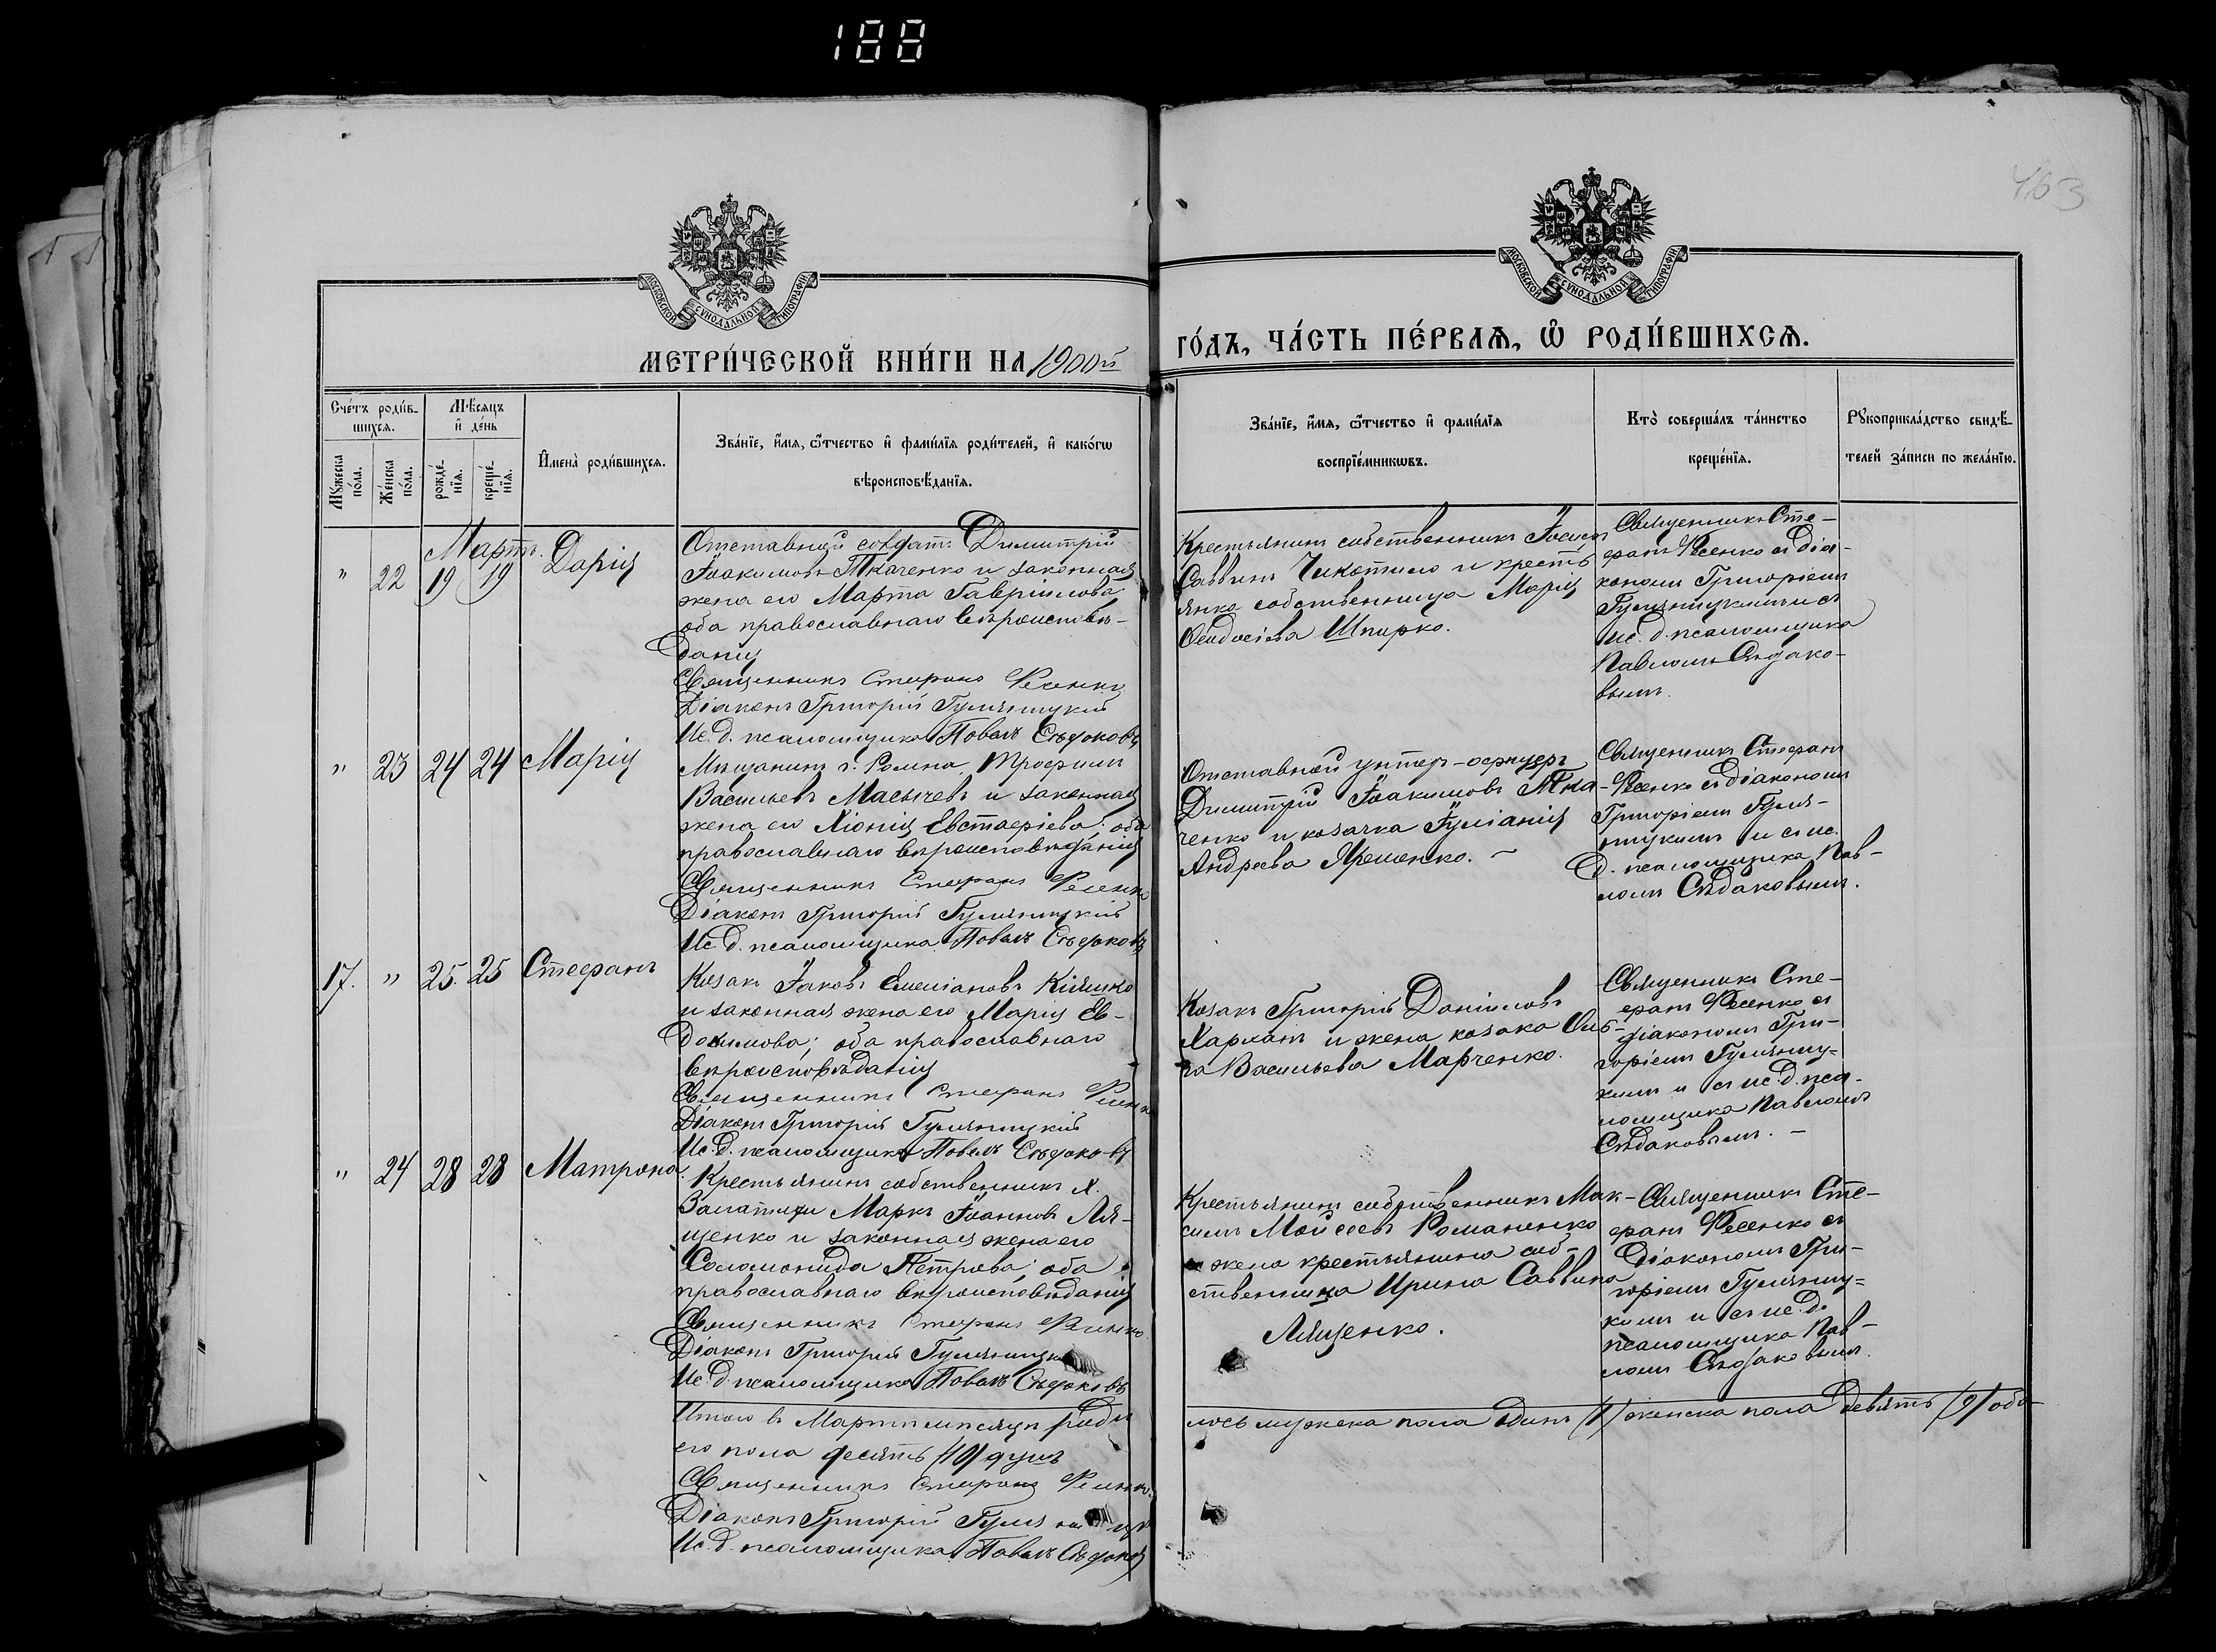 188
463
МОСКОВСКОЙ СѴНОДАЛЬНОЙ ТИПОГРАФІИ
МОСКОВСКОЙ СѴНОДАЛЬНОЙ ТИПОГРАФІИ
МЕТРИ́ЧЕСКОЙ КНИ́ГИ НА 1900й
ГО́ДЪ, ЧА́СТЬ ПЕ́РВАѦ, Ѽ РОДИ́ВШИХСѦ.
Сче́тъ роди́в-
шихсѧ.
Мꙋ́жеска по́ла.
Же́нска по́ла.
Мѣ́сѧцъ и҆ де́нь
рожде́-
нїѧ.
креще́-
нїѧ.
И҆мена̀ роди́вшихсѧ.
Зва́нїе, и҆́мѧ, ѻ҆́тчество и҆ фами́лїѧ роди́телей, и҆ како́гѡ
вѣроисповѣ́данїѧ.
Зва́нїе, и҆́мѧ, ѻ҆́тчество и҆ фами́лїѧ
воспрїе́мникѡвъ.
Кто̀ соверша́лъ та́инство
креще́нїѧ.
Рꙋкоприкла́дство свидѣ́-
телей за́писи по жела́нїю.
Мартъ.
" 22 19 19 Дарія
Отставной солдатъ Димитрій
Іоакимовъ Ткаченко и законная
жена его Марта Гавріилова
оба православнаго вѣроисповѣ-
данія
Священникъ Стефанъ Фесенко
Діаконъ Григорій Гуляницкій
Ис. д. псаломщика Павелъ Сѣдаковъ
Крестьянинъ собственникъ Іосифъ
Саввинъ Чикотило и кресть
янка собственница Марія
Ѳеодосіева Шпирко.
Священникъ Сте-
фанъ Фесенко съ діа-
кономъ Григоріемъ
Гуляницкимъ и съ
ис. д. псаломщика
Павломъ Сѣдако-
вымъ.
" 23 24 24 Марія
Мѣщанинъ г. Ромна, Трофимъ
Васильевъ Масычевъ и законная
жена его Хіонія Евстафіева; оба
православнаго вѣроисповѣданія
Священникъ Стефанъ Фесенко
Діаконъ Григорій Гуляницкій
Ис. д. псаломщика Павелъ Сѣдаковъ
Отставной унтер-офицеръ
Димитрій Іоакимовъ Тка-
ченко и козачка Іуліанія
Андреева Яременко. -
Священникъ Стефанъ
Фесенко съ діакономъ
Григоріемъ Гуля-
ницкимъ и съ ис.
д. псаломщика Пав-
ломъ Сѣдаковымъ.
17. " 25. 25 Стефанъ
Козакъ Іаковъ Емеліановъ Кіяшко
и законная жена его Марія Ев-
докимова; оба православнаго
вѣроисповѣданія
Священникъ Стефанъ Фесенко
Діаконъ Григорій Гуляницкій
Ис. д. псаломщика Павелъ Сѣдаковъ
Козакъ Григорій Даніиловъ
Харланъ и жена козака Оль-
га Васильева Марченко.
Священникъ Сте-
фанъ Фесенко съ
діакономъ Гри-
горіемъ Гуляниц-
кимъ и съ ис. д. пса-
ломщика Павломъ
Сѣдаковымъ. -
" 24 28 28 Матрона.
Крестьянинъ собственникъ х.
Маркъ Іоанновъ Ля-
щенко и законная жена его
Соломонида Петрова; оба
православнаго вѣроисповѣданія
Священникъ Стефанъ Фесенко
Діаконъ Григорій Гуляницкій
Ис. д. псаломщика Павелъ Сѣдаковъ
Крестьянинъ собственникъ Мак-
симъ Мойсеевъ Романенко
и жена крестьянина соб-
ственника Ирина Саввина
Лященко.
Священникъ Сте-
фанъ Фесенко съ
діакономъ Гри-
горіемъ Гуляниц-
кимъ и съ ис. д.
псаломщика Пав-
ломъ Сѣдаковымъ.
Итого въ Мартѣ мѣсяцѣ роди
лось мужеска пола одинъ /1/ женска пола девять /9/ обо
его пола десять /10/ душъ
Священникъ Стефанъ Фесенко
Діаконъ Григорій Гуляницкій
Ис. д. псаломщика Павелъ Сѣдаковъ